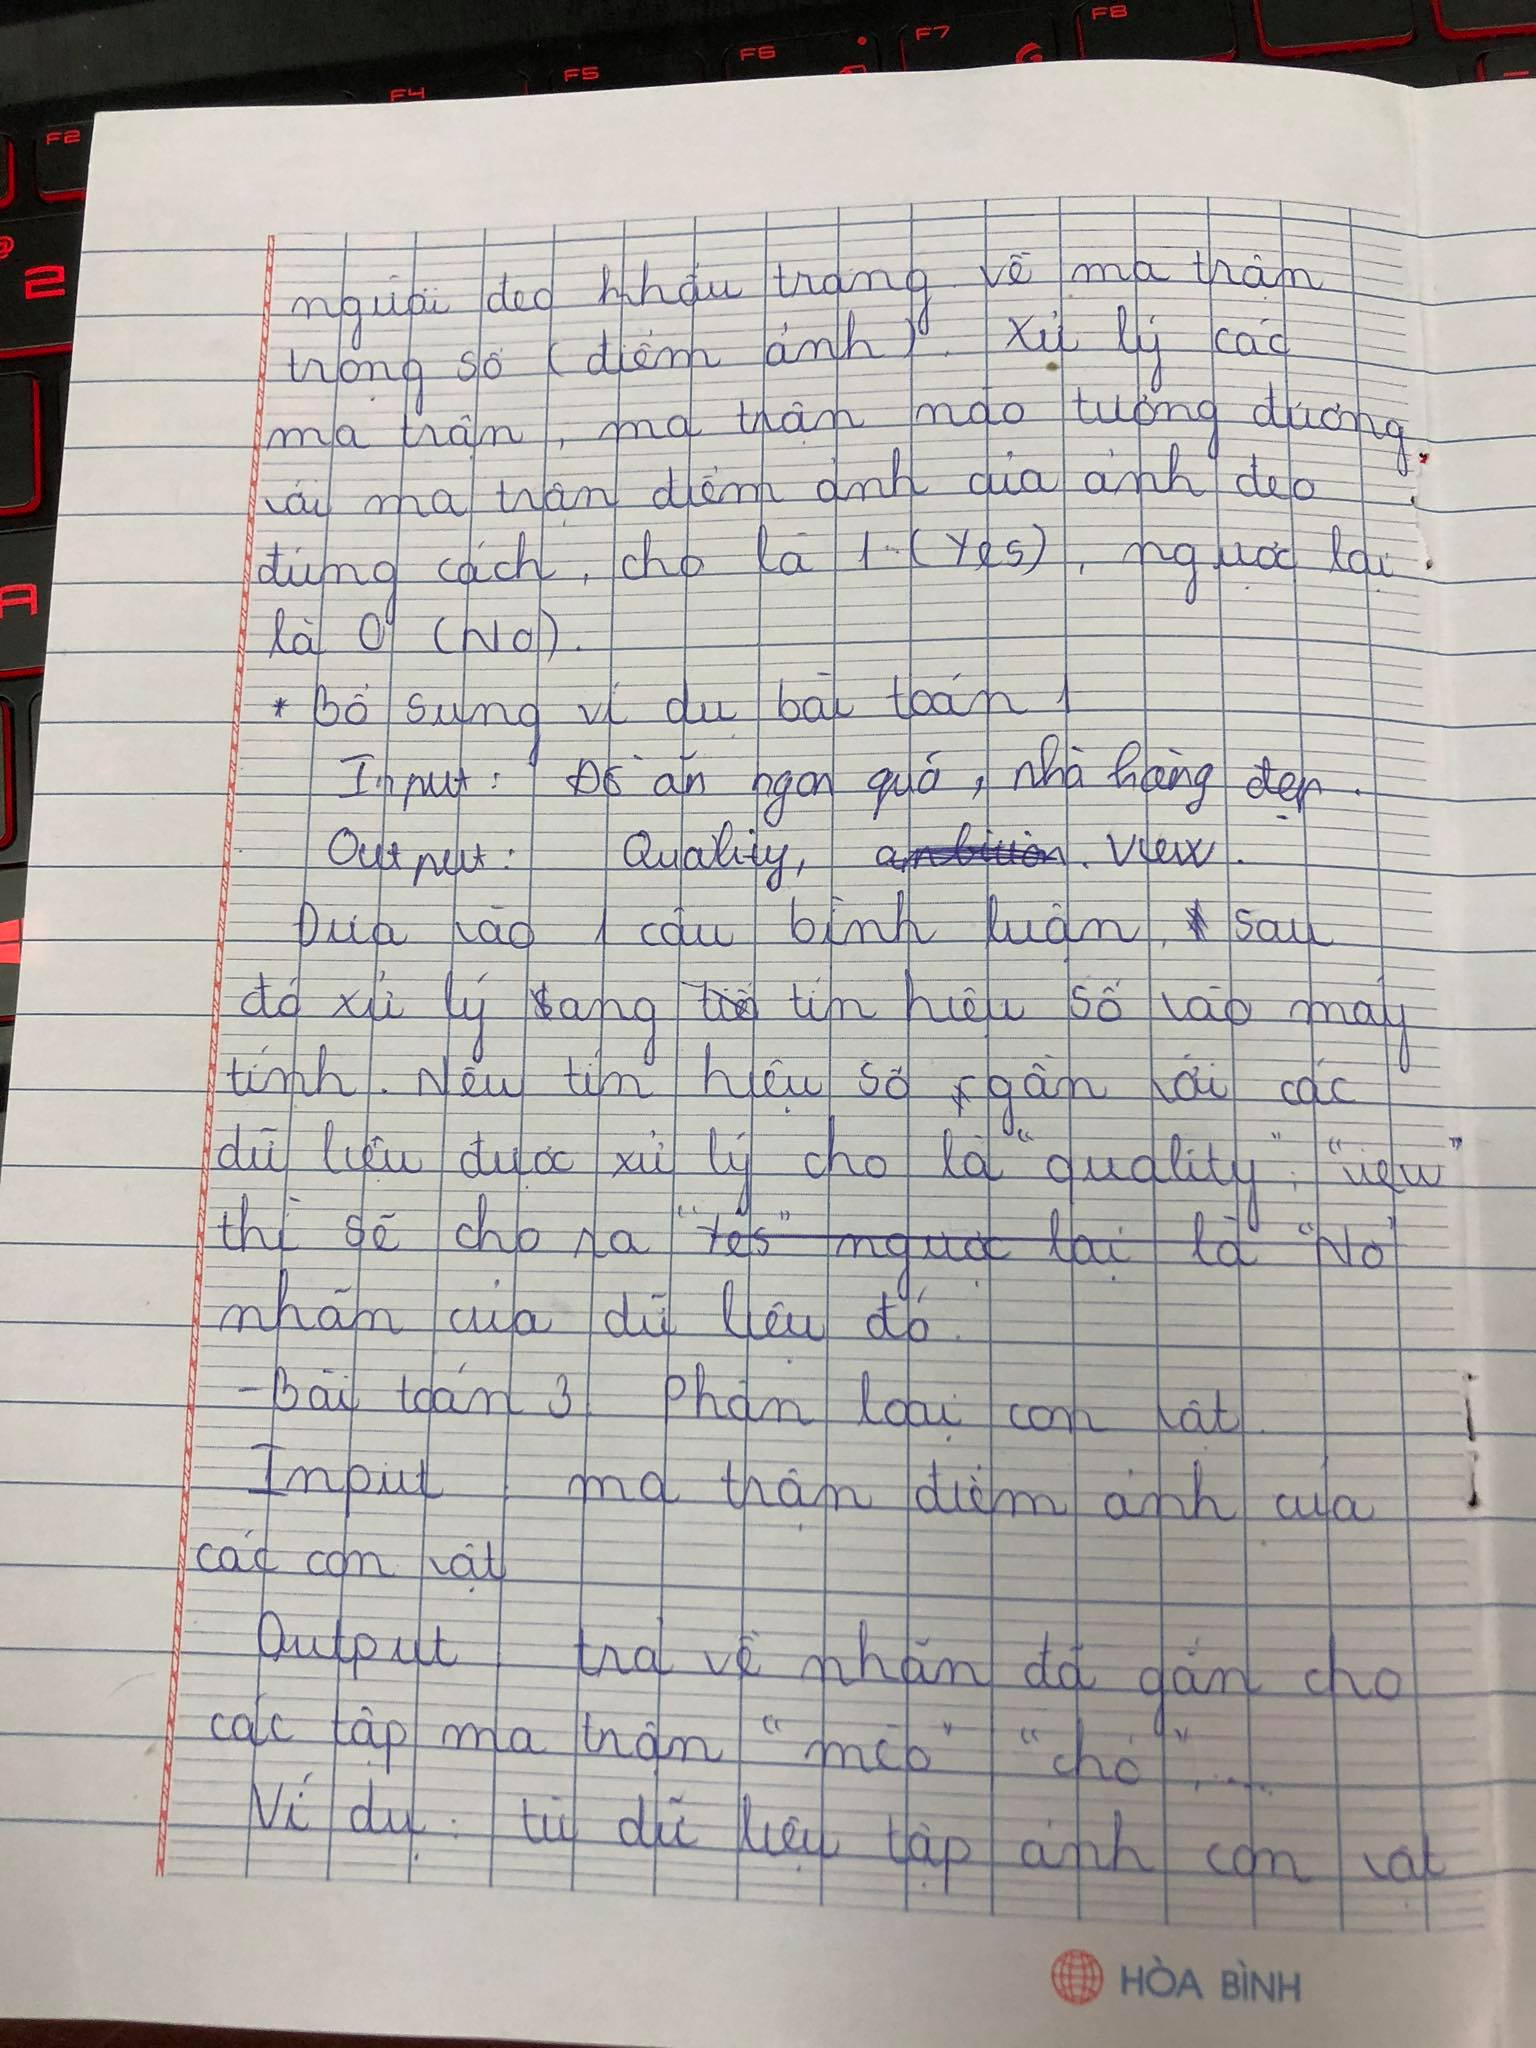 F2
F4
F5
F6
F7
F8
@
2
A
người đeo khẩu trang về ma trận
trọng số (điểm ảnh). Xử lý các
ma trận, ma trận nào tương đương
với ma trận điểm ảnh của ảnh đeo
đúng cách, cho là 1 (Yes), ngược lại
là 0 (No).
* Bổ sung ví dụ bài toán 1
Input: Đồ ăn ngon quá, nhà hàng đẹp.
Output: Quality, view.
Đưa vào 1 câu bình luận, sau
đó xử lý sang tín hiệu số vào máy
tính. Nếu tín hiệu số gần với các
dữ liệu được xử lý cho là "quality", "view"
thì sẽ cho ra "Yes" ngược lại là "No"
nhãn của dữ liệu đó.
- Bài toán 3 Phân loại con vật.
Input: ma trận điểm ảnh của
các con vật
Output: trả về nhãn đã gán cho
các tập ma trận "mèo" "chó", ....
Ví dụ: từ dữ liệu tập ảnh con vật
HÒA BÌNH